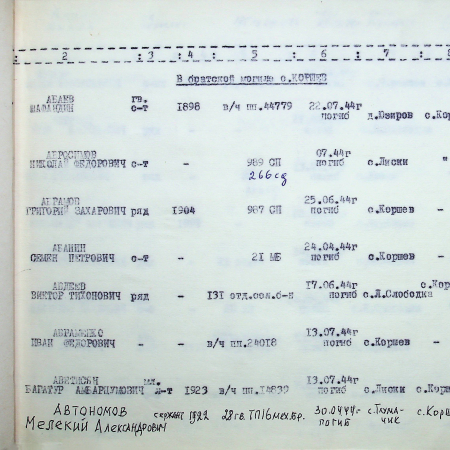 : 2 : 3 : 4 : 5 : 6 : 7 :
В братской могиле с.КОРШЕВ
АБАЕВ гв.
с-т 1898 в/ч пп.44779 22.07.44г
погиб д.Юзиров с.Кор
АБРОСИМОВ
НИКОЛАЙ ФЕДОРОВИЧ с-т - 989 СП 07.44г
погиб с.Лиски "
266 сд
АБРАМОВ
ГРИГОРИЙ ЗАХАРОВИЧ ряд 1904 987 СП 25.06.44г
погиб с.Коршев -
АБАНИН
СЕМЕН ПЕТРОВИЧ с-т - 21 МБ 24.04.44г
погиб с.Коршев -
АВДЕЕВ
ВИКТОР ТИХОНОВИЧ ряд - 131 отд.сом.б-н 17.06.44г
погиб с.Л.Слободка с.Ко
АВРАМЕНКО
ИВАН ФЕДОРОВИЧ - - в/ч пп.24018 13.07.44г
погиб с.Коршев -
АВЕТИСЯН мл.
БАГАТУР АМБАРЦУМОВИЧ л-т 1923 в/ч пп.14839 13.07.44г
погиб с.Лиски с.Корш
АВТОНОМОВ
МЕЛЕКИЙ АЛЕКСАНДРОВИЧ сержант 1922 28 гв.ТП 16 мех.бр. 30.04.44г
ПОГИБ с.ТЛУМА-
ЧИК с.КОРШ